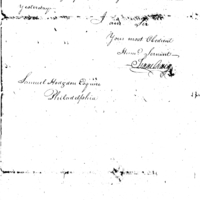 yesterday.
I
and
Your most Obedient
Hum. Servant
Samuel Hodgson Esquire
Philadelphia